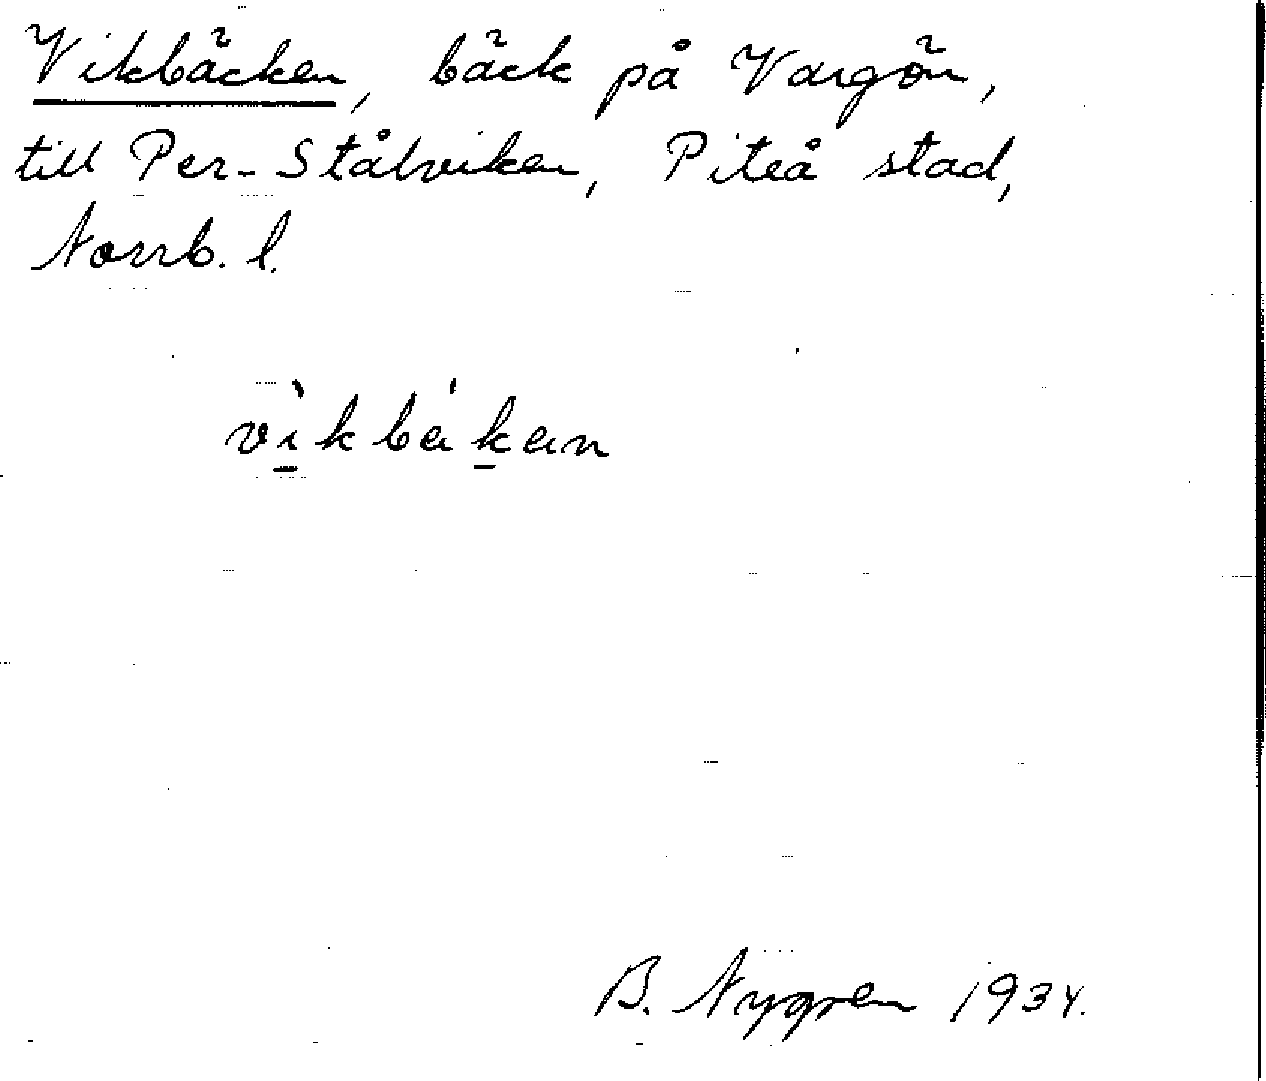 Vikbäcken, bäck på Vargön,
till Per-Stålviken, Piteå stad,
Norrb. l.
vìkbákan
B. Nygren 1934.